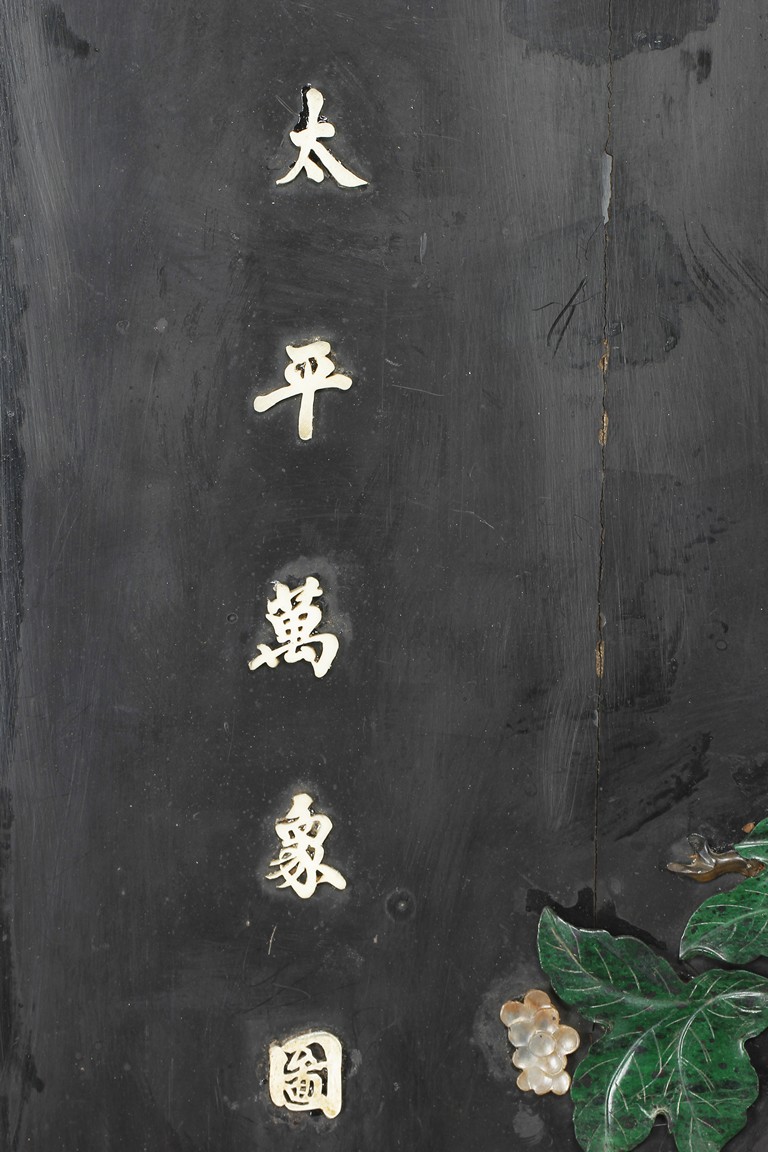 太平萬象圖